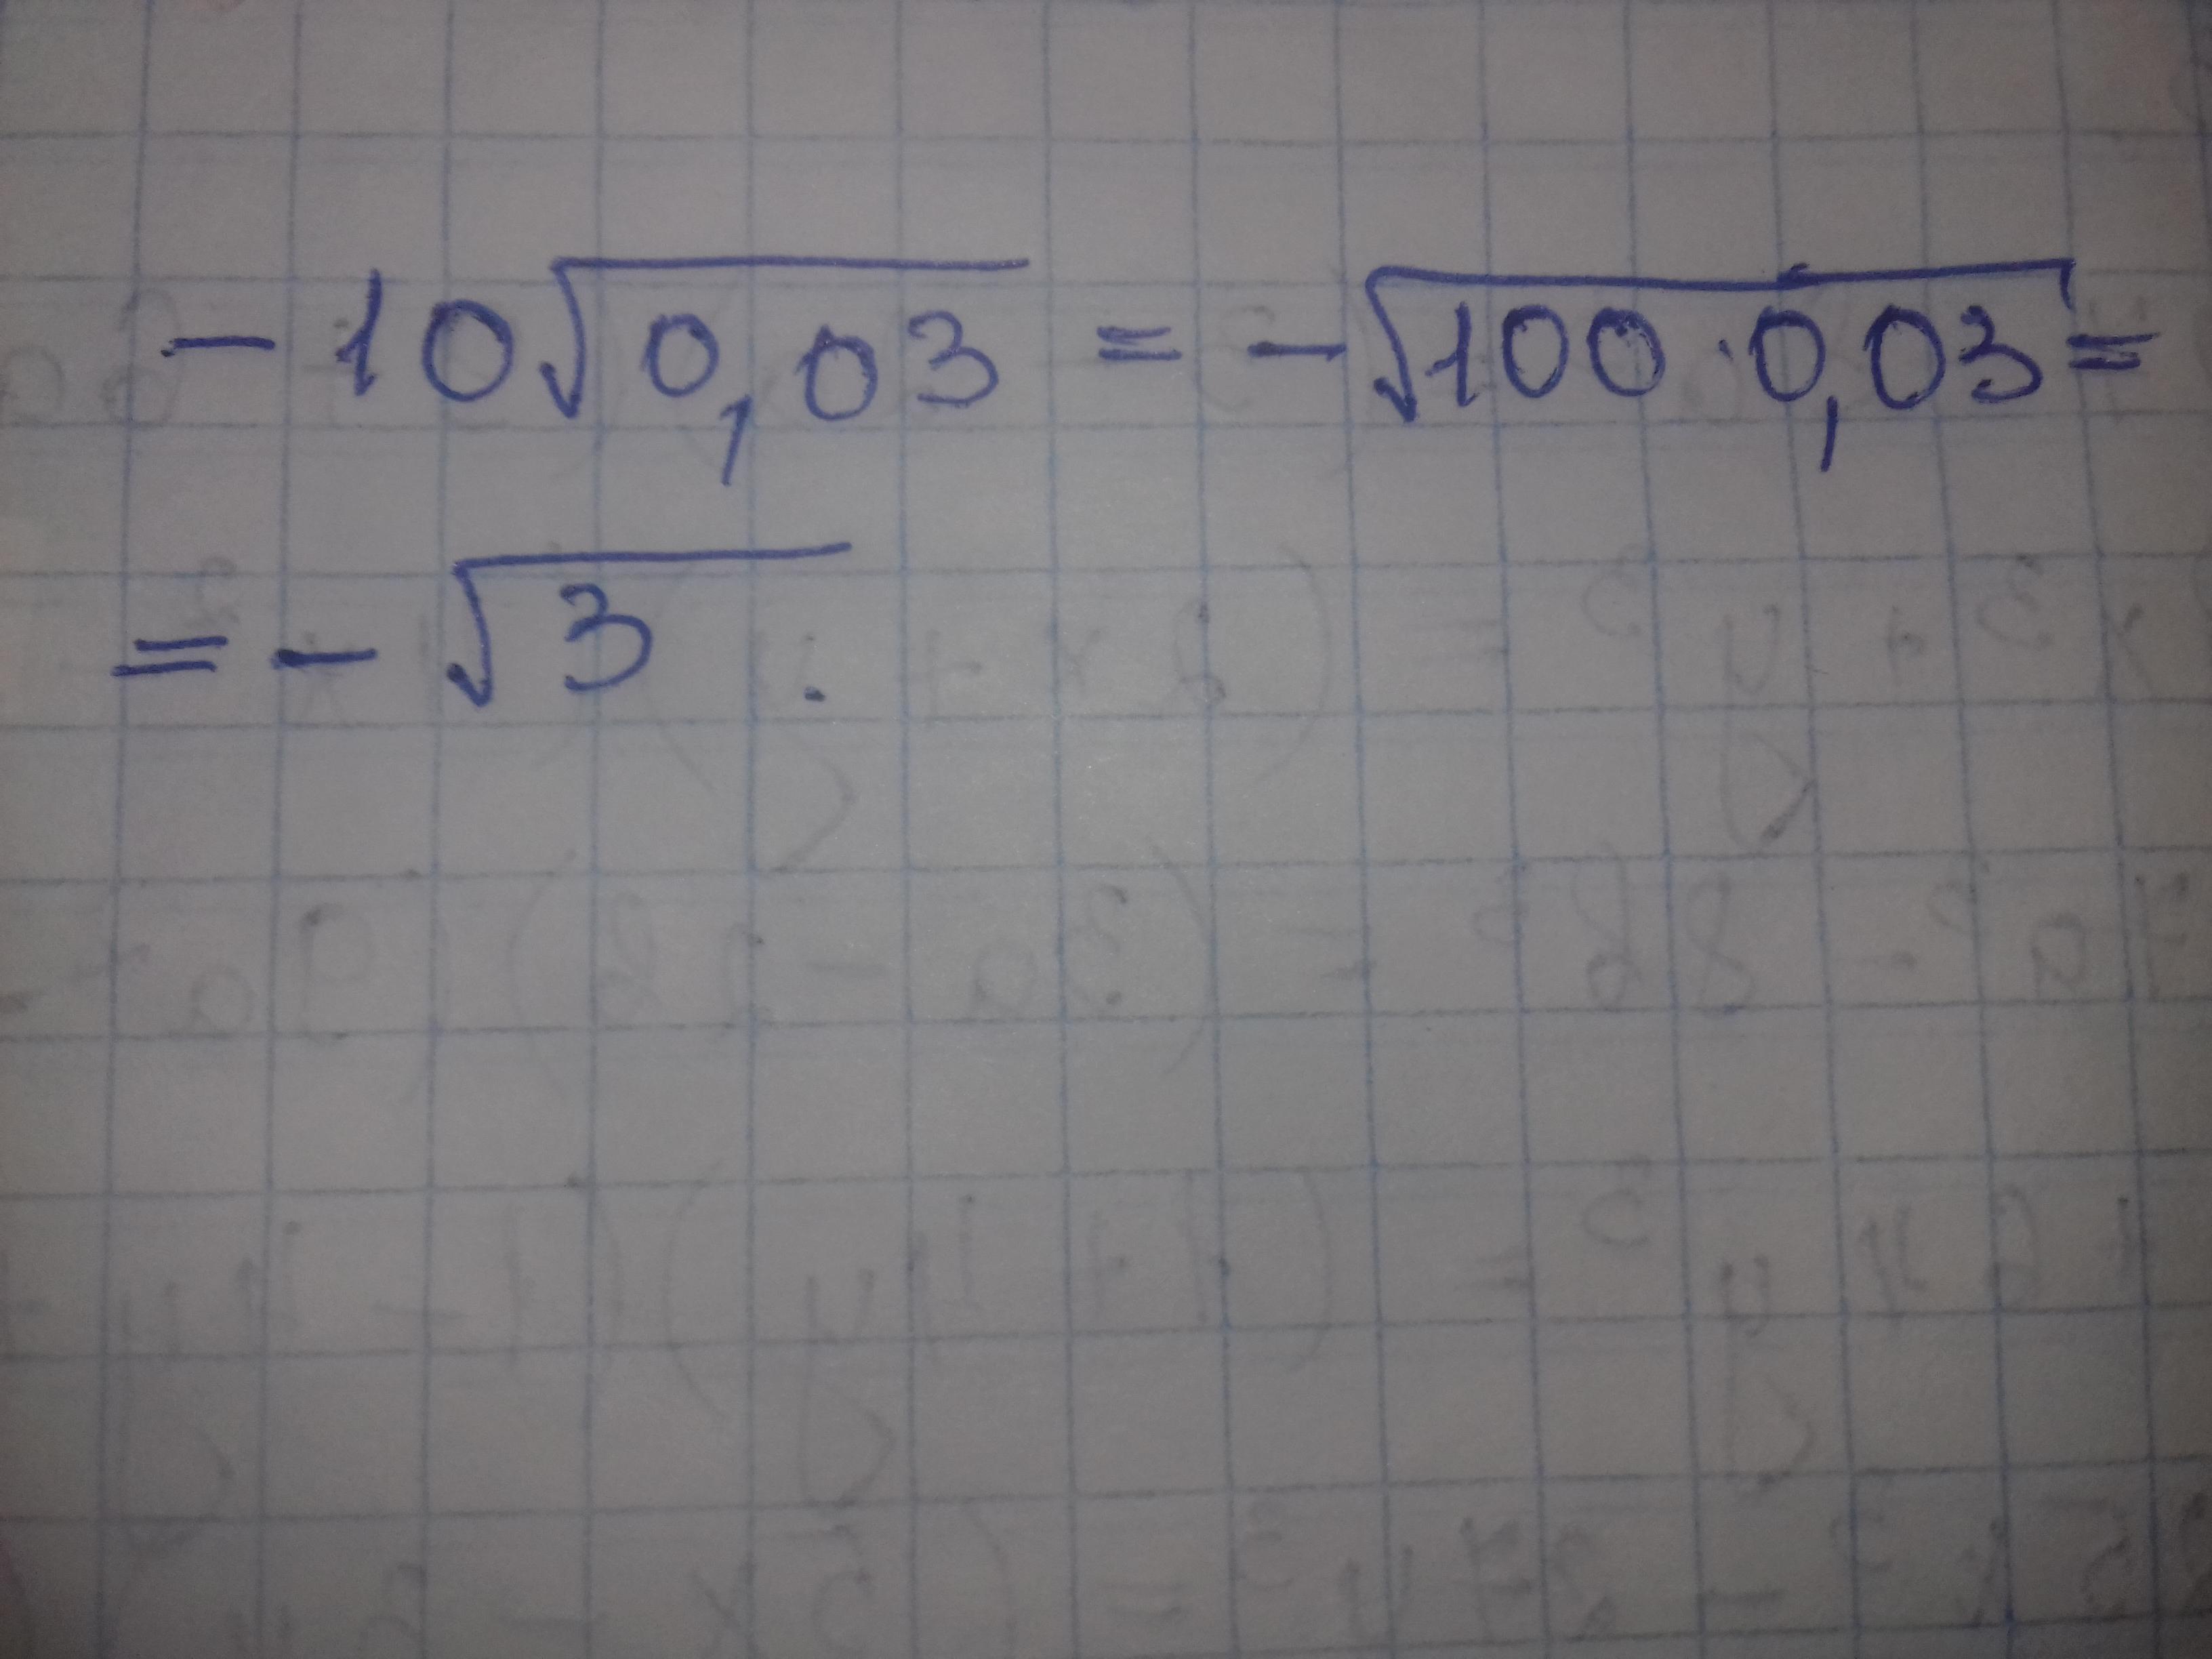 - 10√0,03 = -√100·0,03 =
= - √3 .